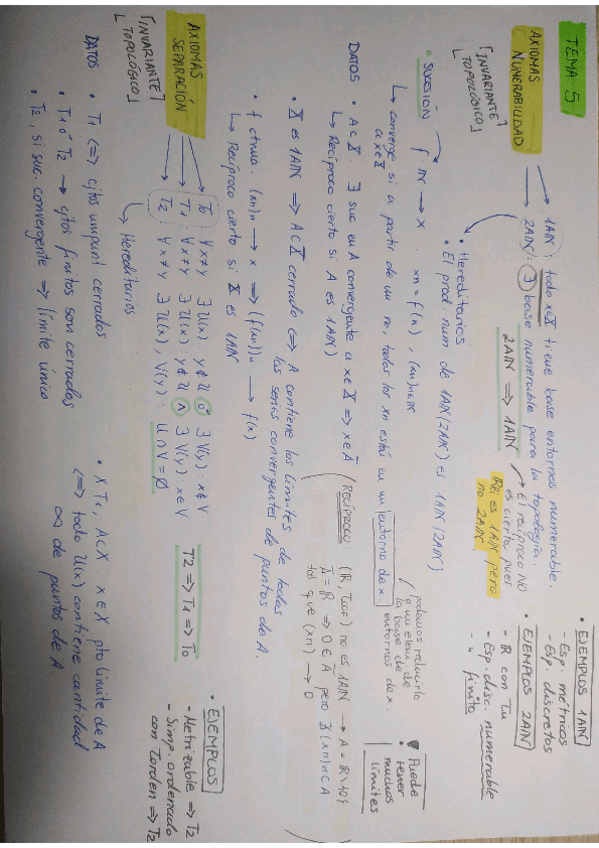 TEMA 5
AXIOMAS
NUMERABILIDAD
「INVARIANTE
TOPOLÓGICO」
1AIN: todo x∈X tiene base entornos numerable.
2AIN: ∃ base numerable para la topología.
2AIN ⟹ 1AIN
→ El recíproco NO
es cierto pues
es 1AIN pero
no 2AIN
• EJEMPLOS 1AIN
- Esp. métricos
- Esp. discretos
• EJEMPLOS 2AIN
- ℝ con Tu
- Esp. disc. numerable
- " finito
• Hereditarios
• El prod. num de 1AIN (2AIN) es 1AIN (2AIN)
• SUCESIÓN f: ℕ → X xn = f(n), (xn)n∈ℕ
↳ converge si a partir de un no, todos los xn están en un entorno de x.
a x∈X
podemos reducirlo
a un elem de
la base de
entornos de x.
Puede
tener
muchos
límites
DATOS • A⊂X ∃ suc en A convergente a x∈X ⟹ x∈Ā
↳ Recíproco cierto si A es 1AIN
RECÍPROCO
(ℝ, Tcof) no es 1AIN → A = ℝ\{0}
Ā = ℝ ⟹ 0∈Ā pero ∄(xn)n⊂A
tal que (xn) → 0
• X es 1AIN ⟹ A⊂X cerrado ⟺ A contiene los límites de todas
las series convergentes de puntos de A.
• f ctnua. (xn)n → x ⟹ (f(xn))n → f(x)
↳ Recíproco cierto si X es 1AIN
AXIOMAS
SEPARACIÓN
「INVARIANTE
TOPOLÓGICO」
T0: ∀x≠y ∃U(x): y∉U ó ∃V(y): x∉V
T1: ∀x≠y ∃U(x): y∉U ∧ ∃V(y): x∉V
T2: ∀x≠y ∃U(x), V(y): U∩V=∅
T2 ⟹ T1 ⟹ T0
↳ Hereditarios
• EJEMPLOS
- Metrizable ⟹ T2
- Simp. ordenado
con Torden ⟹ T2
DATOS • T1 ⟺ cjtos unipunt cerrados
• T1 ó T2 → cjtos finitos son cerrados
• T2, si suc. convergente ⟹ límite único
• X T1, A⊂X. x∈X pto límite de A
⟺ todo U(x) contiene cantidad
∞ de puntos de A.